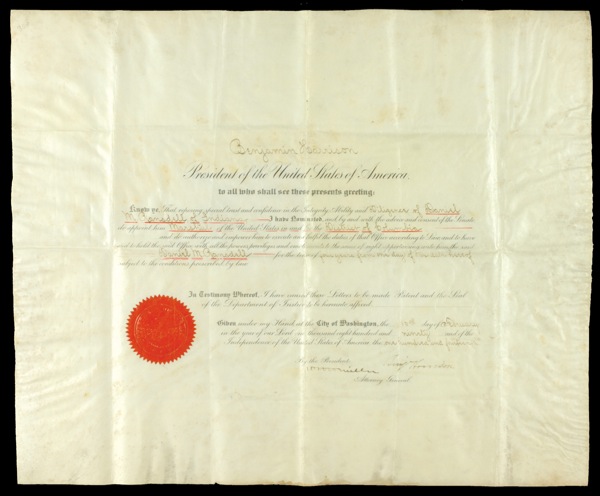 Benjamin Harrison
President of the United States of America,
to all who shall see these presents greeting:
Know ye, that reposing special trust and confidence in the Integrity, Ability and Diligence of Daniel
M. Ransdell of Indiana I have Nominated, and by and with the advice and consent of the Senate
do appoint him Marshal of the United States in and for the District of Columbia
and do authorize and empower him to execute and fulfil the duties of that Office according to Law and to have
and to hold the said Office with all the powers, privileges and emoluments to the same of right appertaining unto him the said
Daniel M. Ransdell for the term of four years from the day of the date hereof
subject to the conditions prescribed by law.
In Testimony Whereof, I have caused these Letters to be made Patent and the Seal
of the Department of Justice to be hereunto affixed.
Given under my Hand, at the City of Washington, the day of
in the year of our Lord one thousand eight hundred and ninety and of the
Independence of the United States of America the one hundred and
By the President,
Benj Harrison
Attorney General